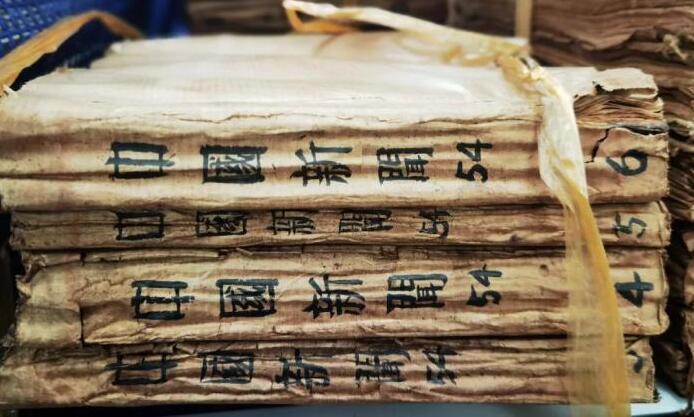 中國新聞 54 6
中國新聞 54 5
中國新聞 54 4
中國新聞 54